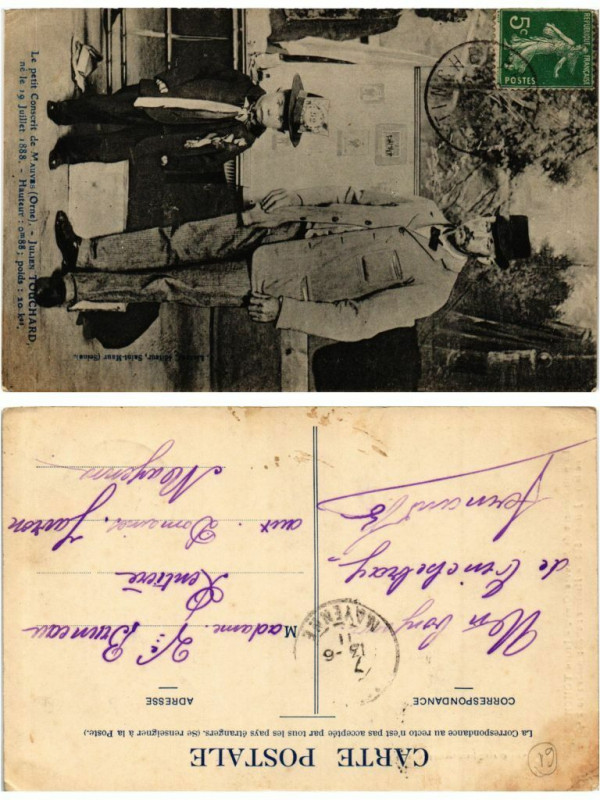 Le petit Conscrit de MAUVES (Orne). - JULIEN TOUCHARD,
né le 19 Juillet 1888. - Hauteur : 0m88 ; poids : 20 kgs.
éditeur, Saint-Maur (Seine).
5c
POSTES
REPUBLIQUE FRANÇAISE
TINCHE
CARTE POSTALE
La Correspondance au recto n'est pas acceptée par tous les pays étrangers. (Se renseigner à la Poste.)
CORRESPONDANCE
ADRESSE
Un bonjour
de Tinchebray
Fernand
7
13-6
11
MAYENNE
Madame Vve Bruneau
Rentière
aux Domaines, Javron
Mayenne